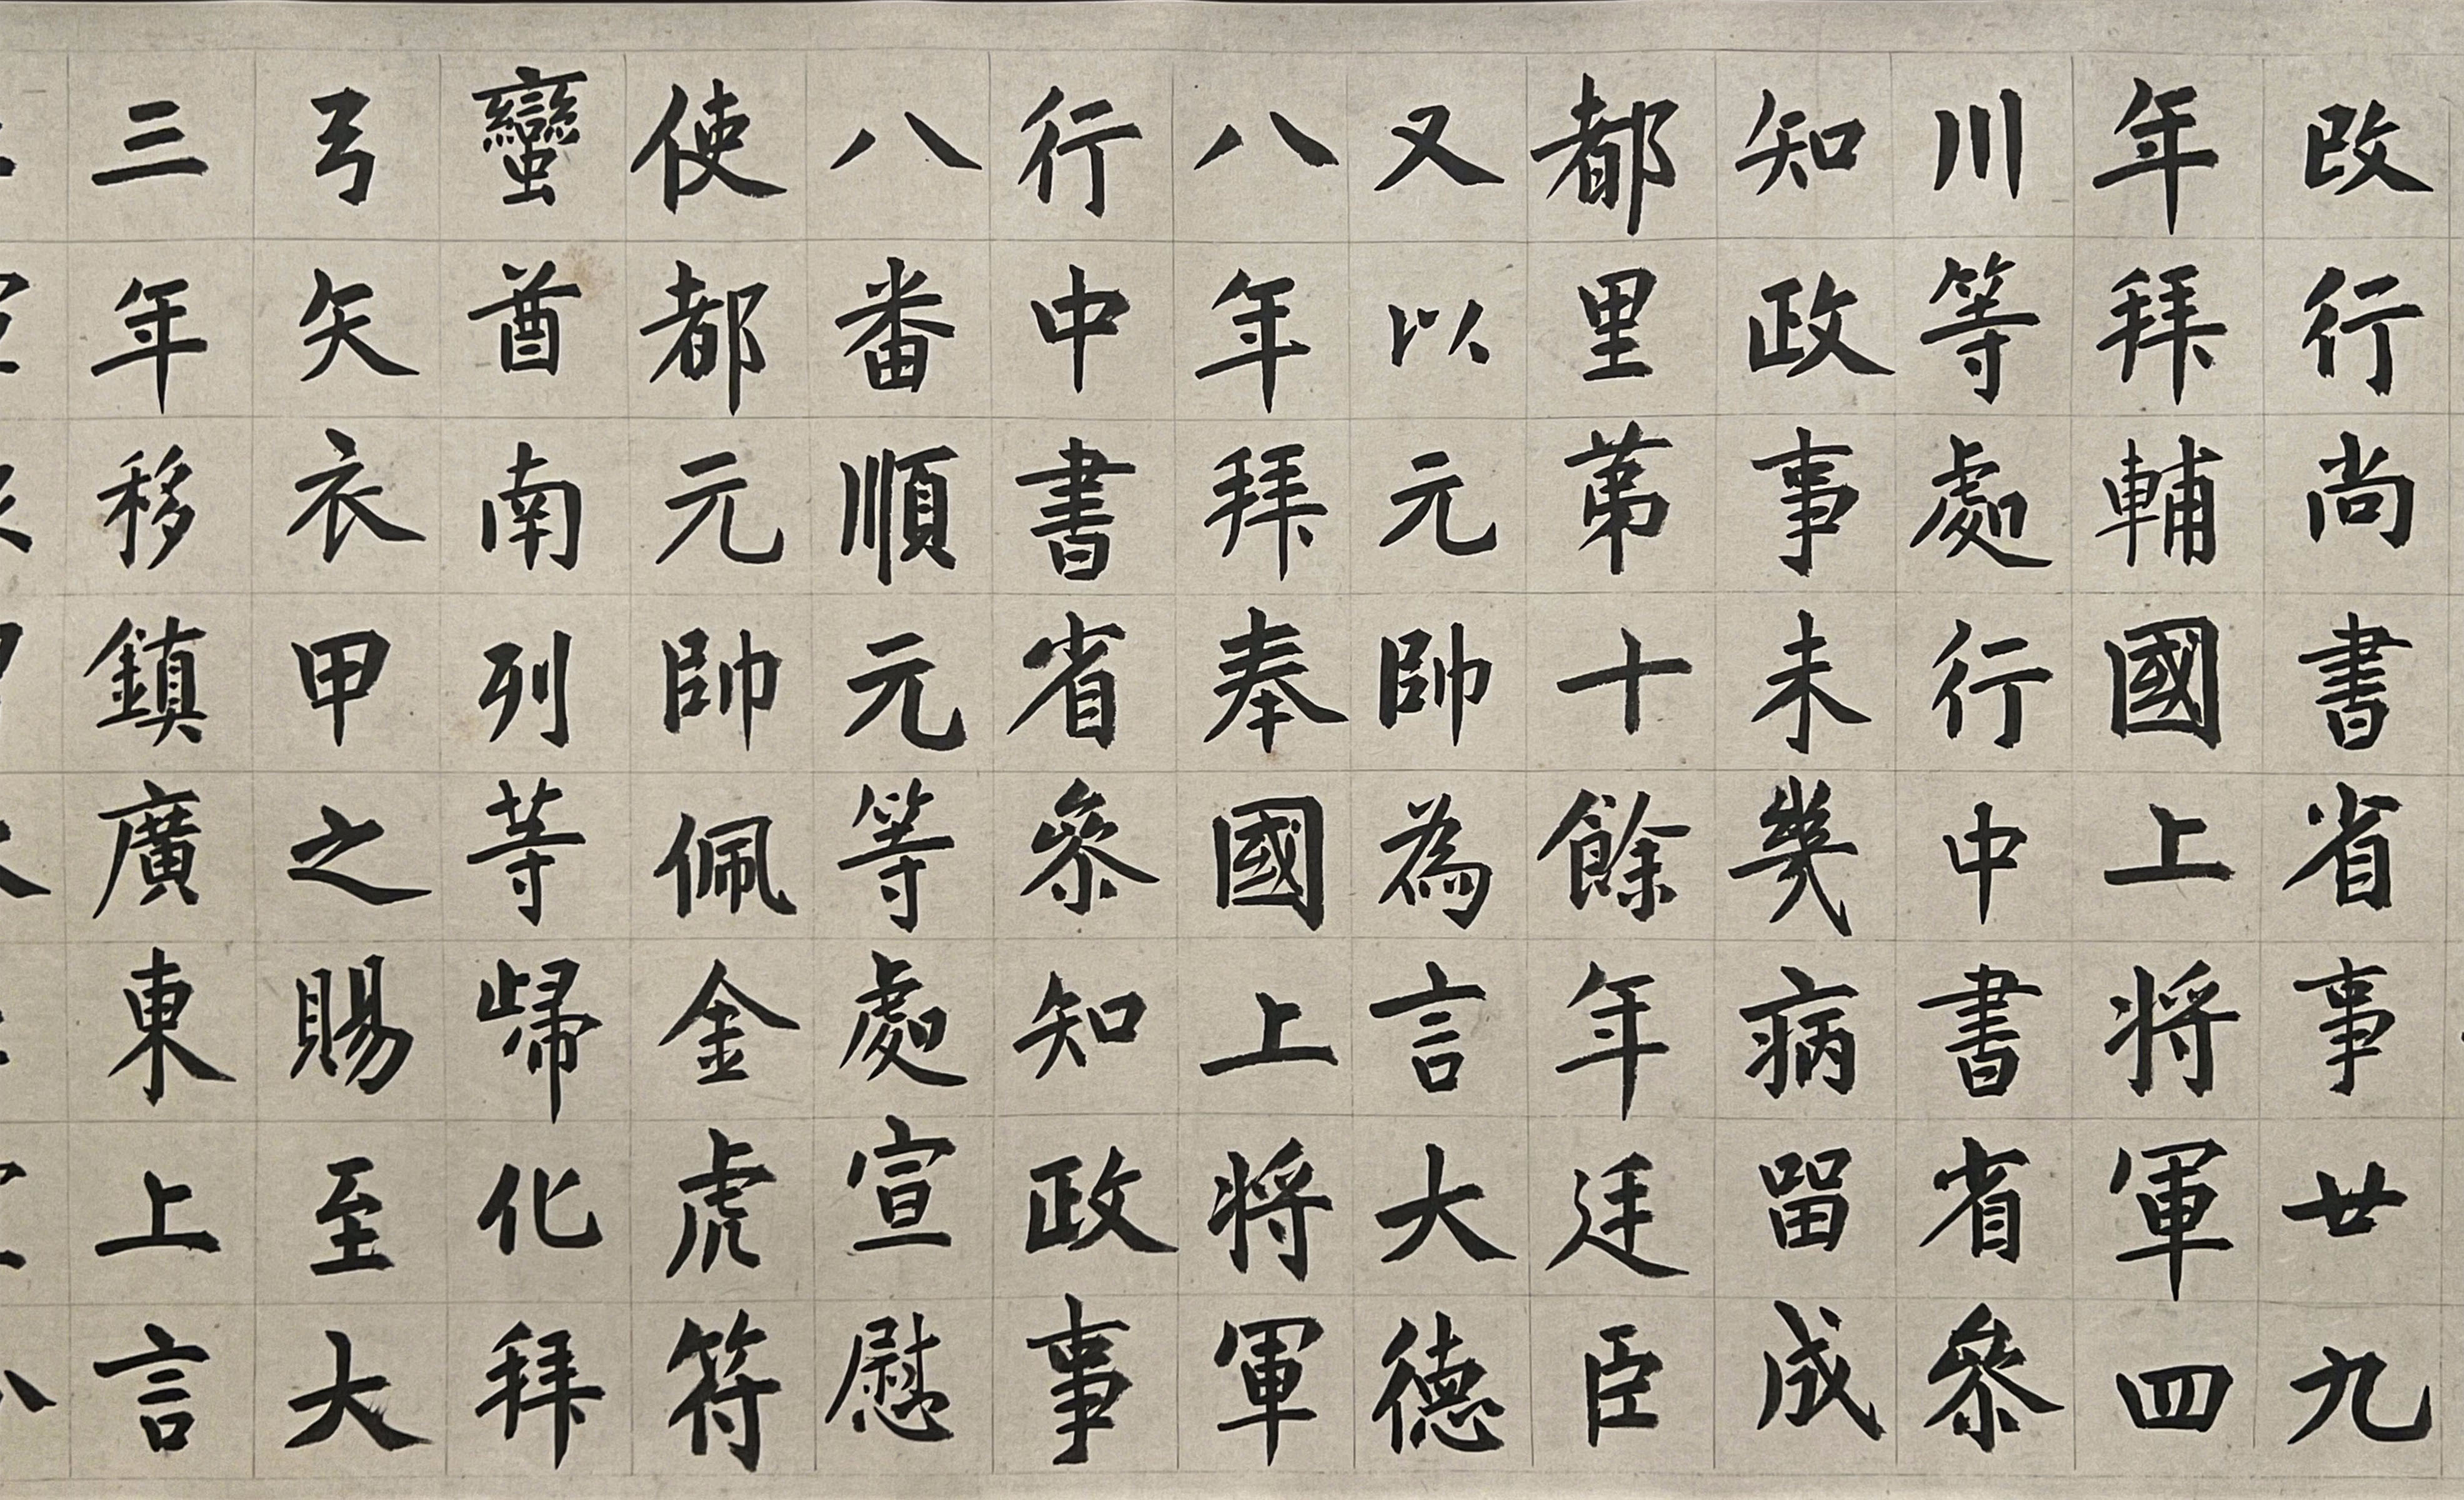 改行尚書省事廿九
年拜輔國上将軍四
川等處行中書省叅
知政事未㡬病留成
都里苐十餘年廷臣
又以元帥為言大德
八年拜奉國上将軍
行中書省叅知政事
八番順元等處宣慰
使都元帥佩金虎符
蠻酋南列䓁歸化拜
弓矢衣甲之賜至大
三年移鎮廣東上言